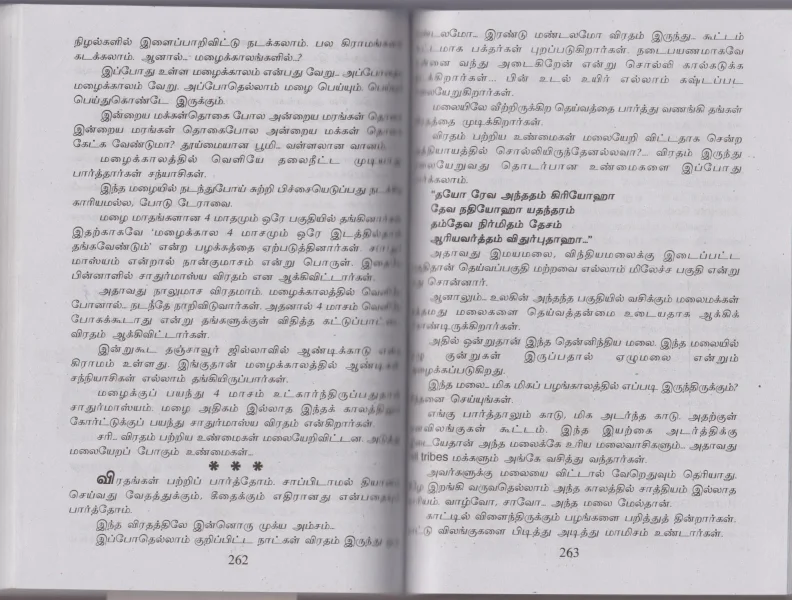 நிழல்களில் இளைப்பாறிவிட்டு நடக்கலாம். பல
கடக்கலாம். ஆனால்.. மழைக்காலங்களில்..?
இப்போது உள்ள மழைக்காலம் என்பது வேறு..
மழைக்காலம் வேறு. அப்போதெல்லாம் மழை பெய்யும்.
பெய்துகொண்டே இருக்கும்.
இன்றைய மக்கள்தொகை போல அன்றைய மரங்கள்
இன்றைய மரங்கள் தொகைபோல அன்றைய மக்கள்
கேட்க வேண்டுமா? தூய்மையான பூமி.. வள்ளலான வானம்.
மழைக்காலத்தில் வெளியே தலைநீட்ட
பார்த்தார்கள் சந்யாசிகள்.
இந்த மழையில் நடந்துபோய் சுற்றி பிச்சையெடுப்பது
காரியமல்ல, போடு டேராவை.
மழை மாதங்களான 4 மாதமும் ஒரே பகுதியில்
இதற்காகவே 'மழைக்கால 4 மாசமும் ஒரே
தங்கவேண்டும்' என்ற பழக்கத்தை ஏற்படுத்தினார்கள்.
மாஸ்யம் என்றால் நான்குமாசம் என்று பொருள்.
பின்னாளில் சாதுர்மாஸ்ய விரதம் என ஆக்கிவிட்டார்கள்.
அதாவது நாலுமாச விரதமாம். மழைக்காலத்தில்
போனால்.. நடந்தே நாறிவிடுவார்கள். அதனால் 4 மாசம்
போகக்கூடாது என்று தங்களுக்குள் விதித்த
விரதம் ஆக்கிவிட்டார்கள்.
இன்றுகூட தஞ்சாவூர் ஜில்லாவில் ஆண்டிக்காடு
கிராமம் உள்ளது. இங்குதான் மழைக்காலத்தில்
சந்நியாசிகள் எல்லாம் தங்கியிருப்பார்கள்.
மழைக்குப் பயந்து 4 மாசம்
சாதுர்மாஸ்யம். மழை அதிகம் இல்லாத இந்தக்
கோர்ட்டுக்குப் பயந்து சாதுர்மாஸ்ய விரதம் என்கிறார்கள்.
சரி.. விரதம் பற்றிய உண்மைகள் மலையேறிவிட்டன.
மலையேறப் போகும் உண்மைகள்..
* * *
விரதங்கள் பற்றிப் பார்த்தோம். சாப்பிடாமல்
செய்வது வேதத்துக்கும், கீதைக்கும் எதிரானது
பார்த்தோம்.
இந்த விரதத்திலே இன்னொரு முக்ய அம்சம்..
இப்போதெல்லாம் குறிப்பிட்ட நாட்கள் விரதம் இருந்து
262
இரண்டு மண்டலமோ விரதம் இருந்து.. கூட்டம்
பக்தர்கள் புறப்படுகிறார்கள். நடைபயணமாகவே
வந்து அடைகிறேன் என்று சொல்லி கால்கடுக்க
பின் உடல் உயிர் எல்லாம் கஷ்டப்பட
மலையிலே வீற்றிருக்கிற தெய்வத்தை பார்த்து வணங்கி தங்கள்
முடிக்கிறார்கள்.
விரதம் பற்றிய உண்மைகள் மலையேறி விட்டதாக சென்ற
சொல்லியிருந்தேனல்லவா?... விரதம் இருந்து
தொடர்பான உண்மைகளை இப்போது
"தயோ ரேவ அந்ததம் கிரியோஹா
தேவ நதியோஹா யதந்தரம்
தம்தேவ நிர்மிதம் தேசம்
ஆரியவர்த்தம் விதுர்புதாஹா..."
அதாவது இமயமலை, விந்தியமலைக்கு இடைப்பட்ட
தெய்வப்பகுதி மற்றவை எல்லாம் மிலேச்ச பகுதி என்று
சொன்னார்.
ஆனாலும்.. உலகின் அந்தந்த பகுதியில் வசிக்கும் மலைமக்கள்
மலைகளை தெய்வத்தன்மை உடையதாக ஆக்கிக்
அதில் ஒன்றுதான் இந்த தென்விந்திய மலை. இந்த மலையில்
குன்றுகள் இருப்பதால் ஏழுமலை என்றும்
இந்த மலை.. மிக மிகப் பழங்காலத்தில் எப்படி இருந்திருக்கும்?
செய்யுங்கள்.
எங்கு பார்த்தாலும் காடு, மிக அடர்ந்த காடு. அதற்குள்
கூட்டம். இந்த இயற்கை அடர்த்திக்கு
அந்த மலைக்கே உரிய மலைவாசிகளும்.. அதாவது
tribes மக்களும் அங்கே வசித்து வந்தார்கள்.
அவர்களுக்கு மலையை விட்டால் வேறெதுவும் தெரியாது.
இறங்கி வருவதெல்லாம் அந்த காலத்தில் சாத்தியம் இல்லாத
வாழ்வோ, சாவோ.. அந்த மலை மேல்தான்.
காட்டில் விளைந்திருக்கும் பழங்களை பறித்துத் தின்றார்கள்.
விலங்குகளை பிடித்து அடித்து மாமிசம் உண்டார்கள்.
263